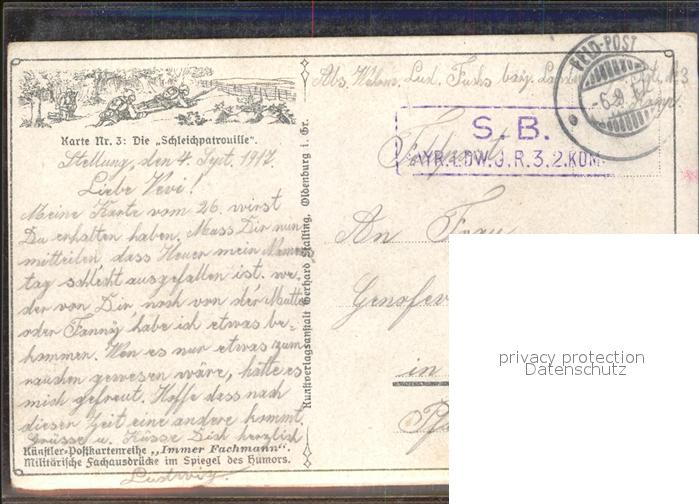 Karte Nr. 3: Die „Schleichpatrouille".
Stellung, den 4. Sept. 1917.
Liebe Vevi!
Meine Karte vom 26. wirst
Du erhalten haben. Muss Dir nun
mitteilen dass Heuer mein Namens
tag schlecht ausgefallen ist. we-
der von Dir noch von der Mutter
oder Fanny habe ich etwas be-
kommen. Wen es nur etwas zum
rauchen gewesen wäre, hätte es
mich gefreut. Hoffe dass nach
diesen Zeit eine andere kommt.
Grüsse u. Küsse Dich herzlich
Ludwig.
Künstler-Postkartenreihe „Immer Fachmann".
Militärische Fachausdrücke im Spiegel des Humors.
Kunstverlagsanstalt Gerhard Stalling, Oldenburg i. Gr.
Abs. Lud. Fuchs bayr.
FELD-POST
S. B.
BAYR. LDW. J. R. 3. 2. KOM
An Frau
in
privacy protection
Datenschutz